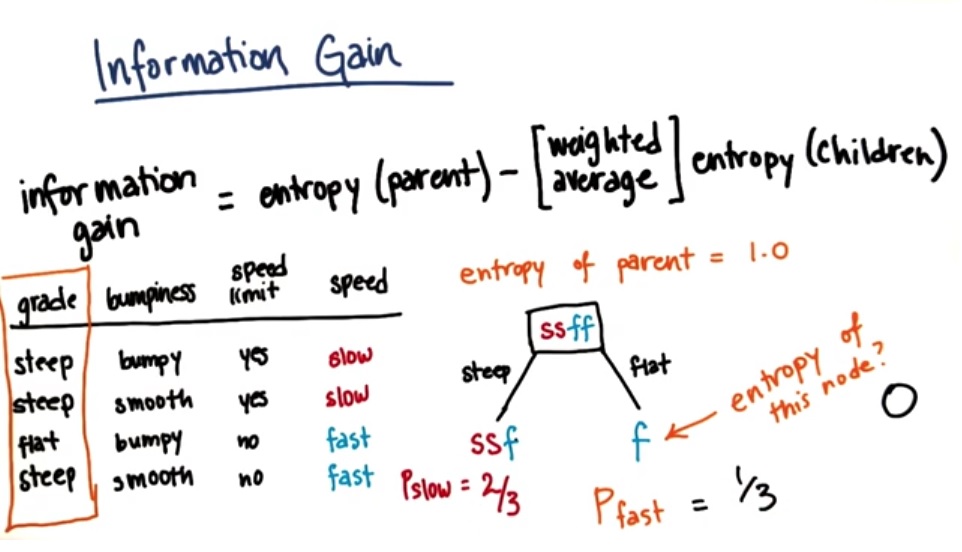 Information Gain
information gain = entropy (parent) - [weighted average] entropy (children)
grade bumpiness speed limit speed
steep bumpy yes slow
steep smooth yes slow
flat bumpy no fast
steep smooth no fast
entropy of parent = 1.0
ssff
steep flat
ssf f
entropy of this node?
0
Pslow = 2/3
Pfast = 1/3